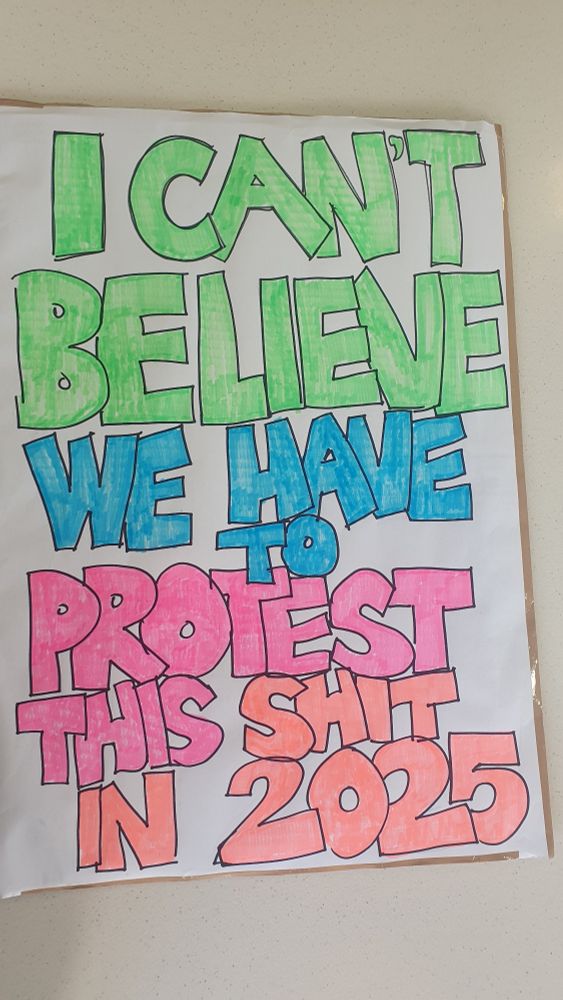 I CAN'T
BELIEVE
WE HAVE
TO
PROTEST
THIS SHIT
IN 2025